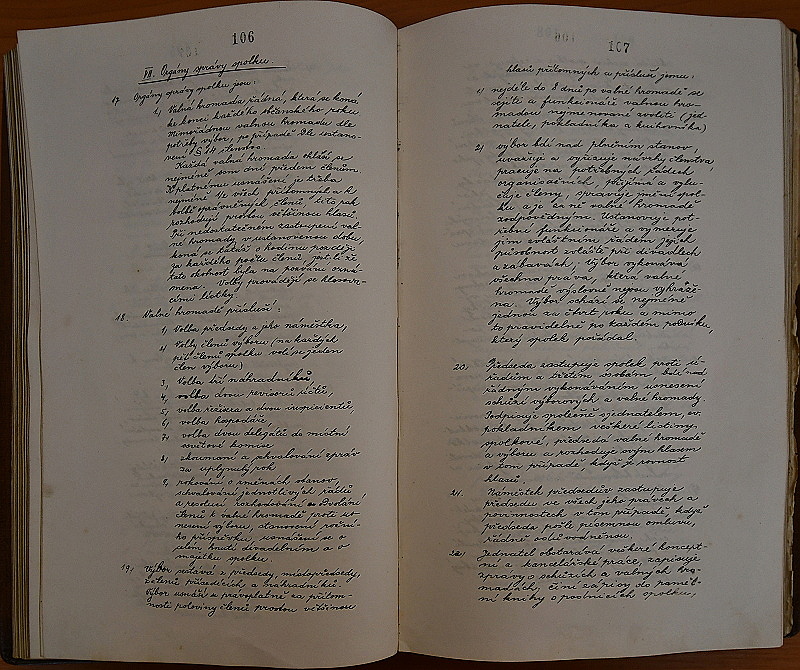 106
VII. Orgány správy spolku.
17. Orgány správy spolku jsou:
1, Valná hromada řádná, která se koná
ke konci každého občanského roku
Mimořádnou valnou hromadu dle
potřeby výbor, po případě dle ustano-
vení § 14 členstvo.
Každá valná hromada ohlásí se
nejméně osm dní předem členům.
K platnému usnášení je třeba
nejméně 1/2 všech přítomných a k
volbě oprávněných členů, kteří pak
rozhodují prostou většinou hlasů.
Při nedostatečném zastoupení val-
né hromady v ustanovenou dobu,
koná se táž o hodinu později
za každého počtu členů, jest-li že
tato okolnost byla na pozvání ozná-
mena. Volby provádějí se hlasova-
cími lístky.
18. Valné hromadě přísluší:
1, Volba předsedy a jeho náměstka,
2, Volby členů výboru (na každých
pět členů spolku volí se jeden
člen výboru)
3, Volba tří náhradníků,
4, volba dvou revisorů účtů,
5, volba režiséra a dvou inspicientů,
6, volba hospodáře,
7, volba dvou delegátů do místní
osvětové komise
8, zkoumání a schvalování zpráv
za uplynulý rok
9, rokování o změnách stanov,
schvalování jednotlivých řádů
a resolucí rozhodování o odvolání
členů k valné hromadě proti us-
nesení výboru, stanovení roční-
ho příspěvku usnášení se o
jelení divadelním a o
majetku spolku.
19. Výbor sestává z předsedy, místopředsedy,
členů přísedících a náhradníků.
Výbor usnáší se právoplatně za přítom-
nosti poloviny členů prostou většinou
107
hlasů přítomných a přísluší jemu:
1, nejdéle do 8 dnů po valné hromadě se
sejíti a funkcionáře valnou hro-
madou nejmenované zvoliti (jed-
natele, pokladníka a knihovníka)
2, výbor bdí nad plněním stanov,
uvažuje a vyřizuje návrhy členstva,
pracuje na potřebných řádech
organisačních, přijímá a vylu-
čuje členy, spravuje jmění spol-
ku a je za ně valné hromadě
zodpovědným. Ustanovuje pot-
řebné funkcionáře a vyměřuje
jim zvláštním řádem jejich
působnost zvláště při divadlech
a zábavách. Výbor vykonává
všechna práva, která valné
hromadě výslovně nejsou vyhraže-
na. Výbor schází se nejméně
jednou za čtvrt roku a mimo
to pravidelně po každém podniku,
který spolek pořádal.
20. Předseda zastupuje spolek proti ú-
řadům a třetím osobám, bdí nad
řádným vykonáváním usnesení
schůzí výborových a valné hromady.
Podpisuje společně s jednatelem, ev.
pokladníkem veškeré listiny
spolkové, předsedá valné hromadě
a výboru a rozhoduje svým hlasem
v tom případě, když je rovnost
hlasů.
21. Náměstek předsedův zastupuje
předsedu ve všech jeho právech a
povinnostech v tom případě, když
předseda pošle písemnou omluvu,
řádně odůvodněnou.
22. Jednatel obstarává veškeré koncept-
ní a kancelářské práce, zapisuje
zprávy o schůzích a valných hro-
madách, činí zápisy do pamět-
ní knihy o podnicích spolku,